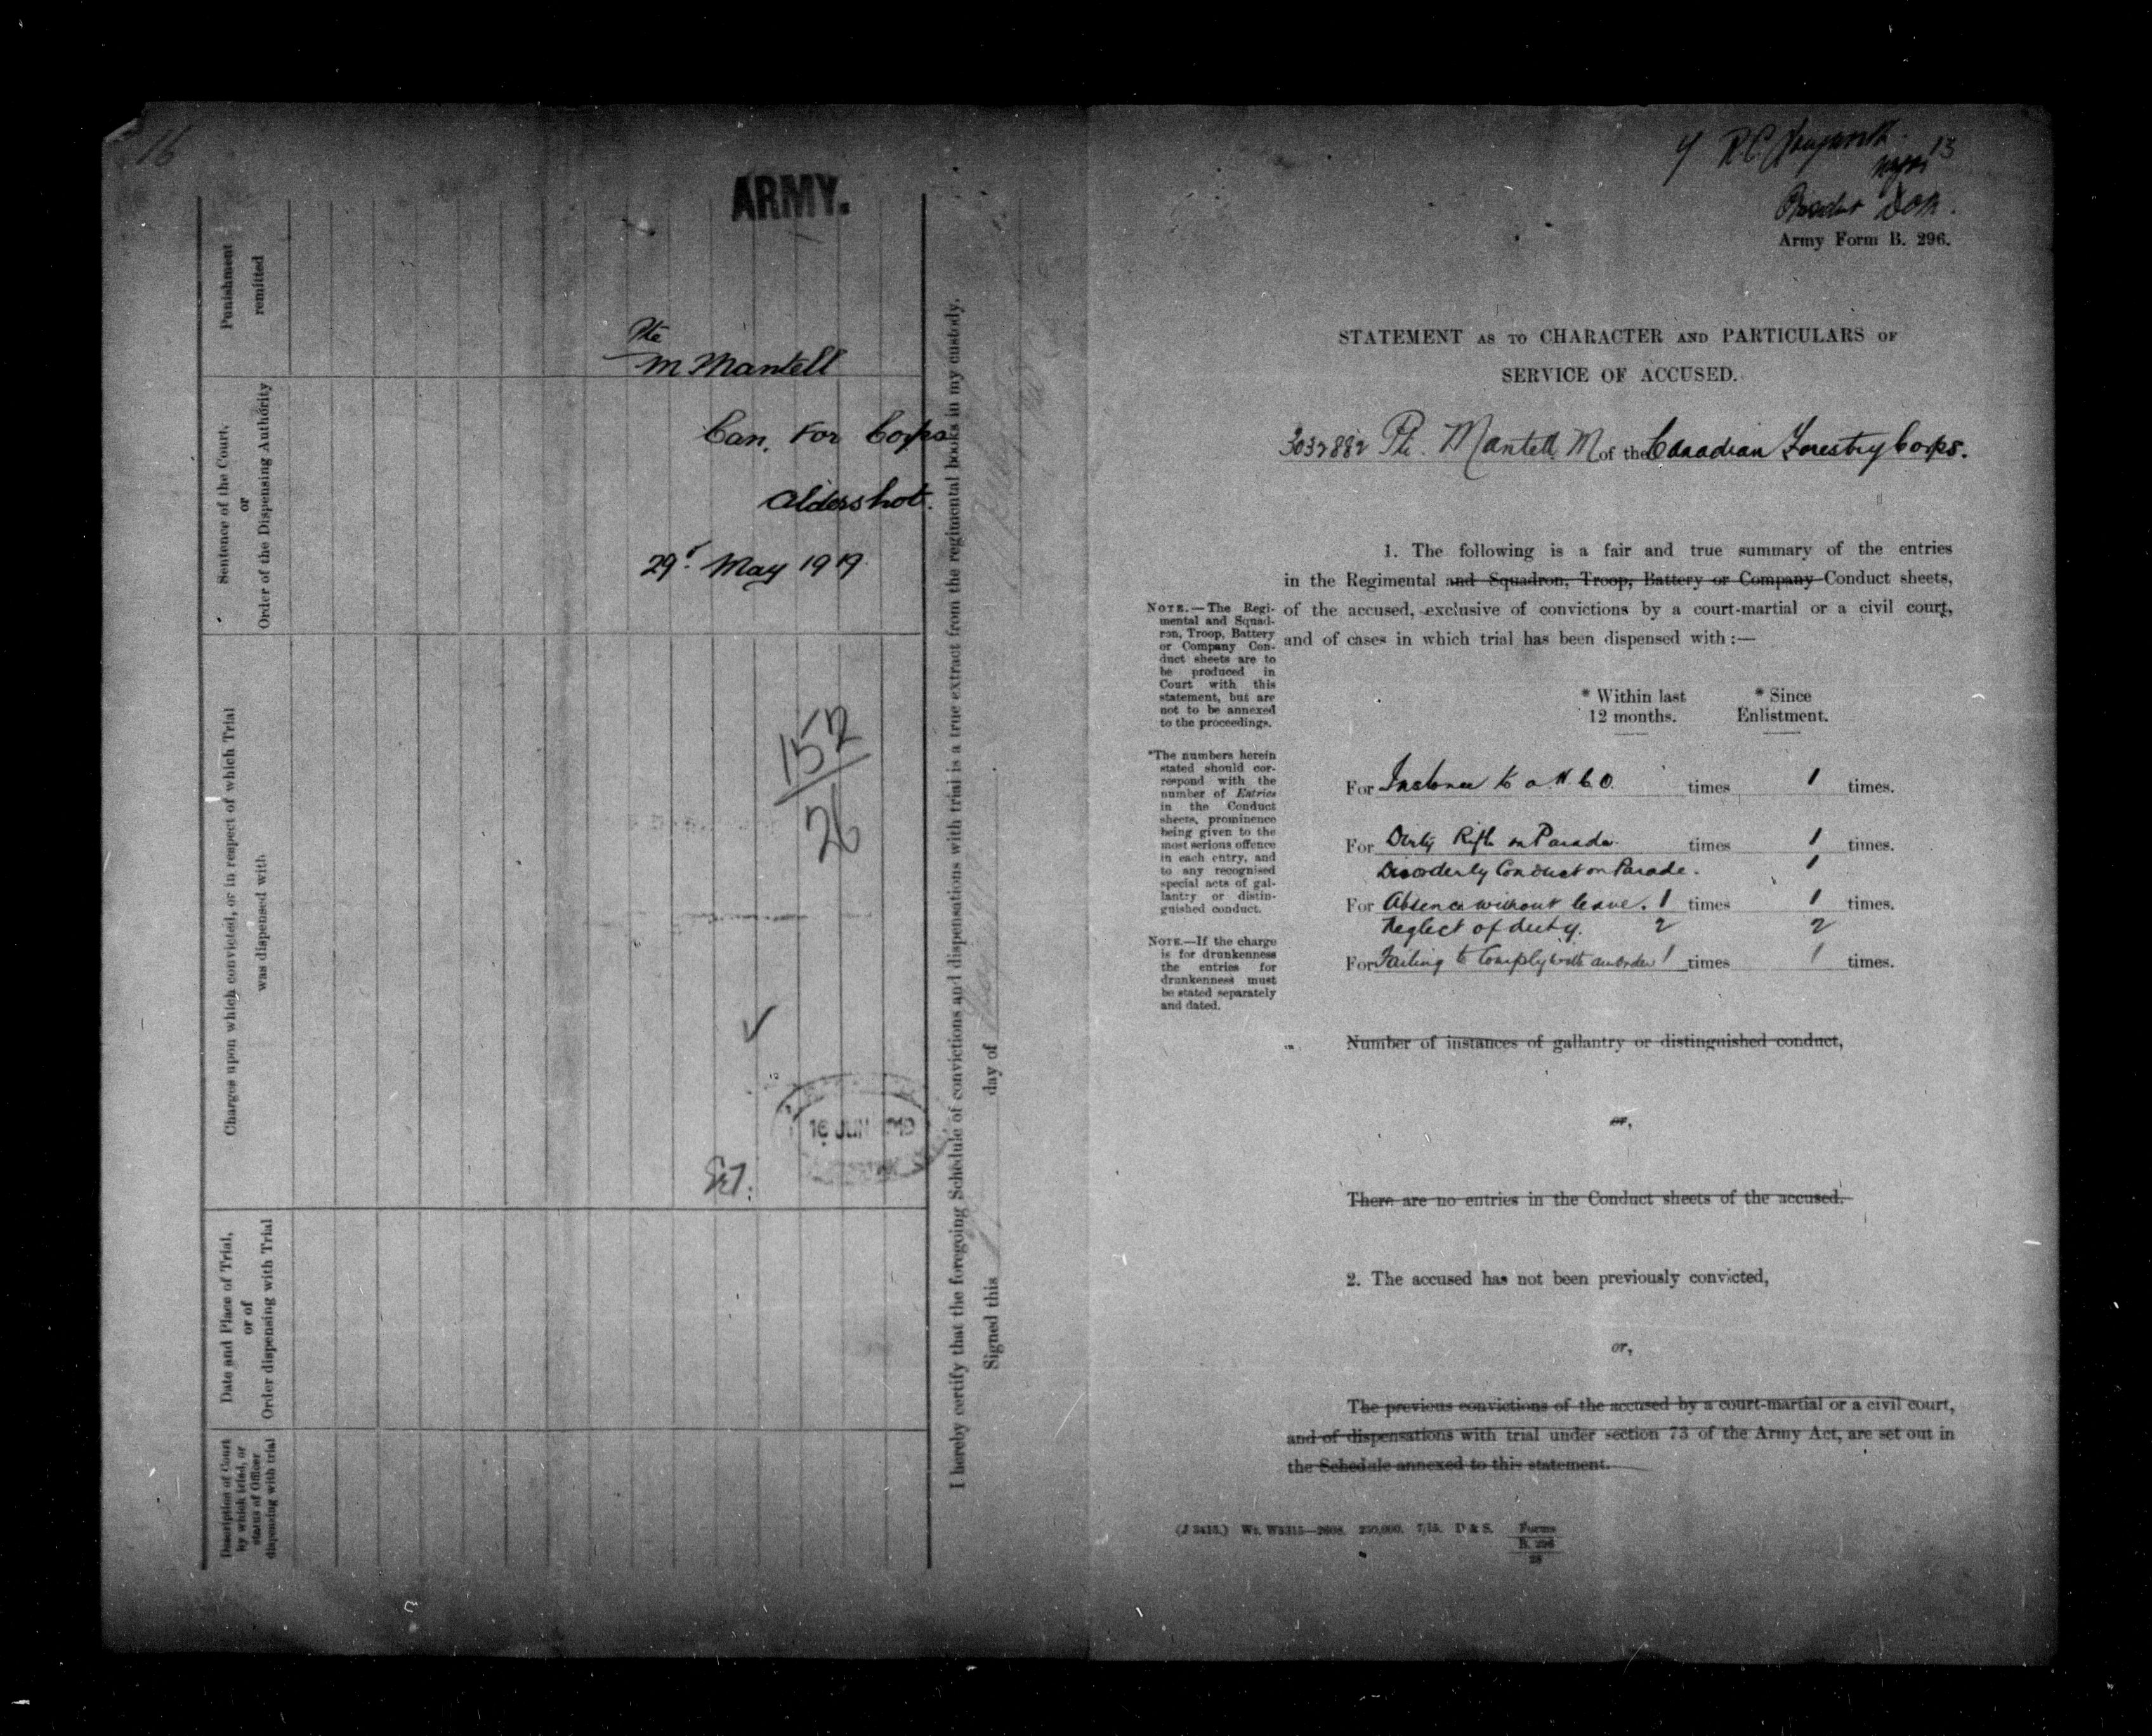 16
ARMY.
Punishment
remitted
Sentence of the Court,
or
Order of the Dispensing Authority
Charges upon which convicted, or in respect of which Trial
was dispensed with
Date and Place of Trial,
or of
Order dispensing with Trial
Description of Court
by which tried, or
status of Officer
dispensing with trial
Pte
M Mantell
Can. For Corps
Aldershot.
29 May 1919
152
26
16 JUN
I hereby certify that the foregoing Schedule of convictions and dispensations with trial is a true extract from the regimental books in my custody.
Signed this day of
13
Army Form B. 296.
STATEMENT AS TO CHARACTER AND PARTICULARS OF
SERVICE OF ACCUSED.
3032882 Pte. Mantell M of the Canadian Forestry Corps.
1. The following is a fair and true summary of the entries
in the Regimental and Squadron, Troop, Battery or Company Conduct sheets,
of the accused, exclusive of convictions by a court-martial or a civil court,
and of cases in which trial has been dispensed with :—
NOTE.—The Regi-
mental and Squad-
ron, Troop, Battery
or Company Con-
duct sheets are to
be produced in
Court with this
statement, but are
not to be annexed
to the proceedings.
*The numbers herein
stated should cor-
respond with the
number of Entries
in the Conduct
sheets, prominence
being given to the
most serious offence
in each entry, and
to any recognised
special acts of gal-
lantry or distin-
guished conduct.
NOTE.—If the charge
is for drunkenness
the entries for
drunkenness must
be stated separately
and dated.
* Within last * Since
12 months. Enlistment.
For to a N.C.O. times 1 times.
For Dirty Rifle on Parade. times 1 times.
Disorderly Conduct on Parade. 1
For Absence without leave. 1 times 1 times.
Neglect of duty. 2 2
For Failing to Comply with an order 1 times 1 times.
Number of instances of gallantry or distinguished conduct,
or,
There are no entries in the Conduct sheets of the accused.
2. The accused has not been previously convicted,
or,
The previous convictions of the accused by a court-martial or a civil court,
and of dispensations with trial under section 73 of the Army Act, are set out in
the Schedule annexed to this statement.
D & S. Forms
B. 296